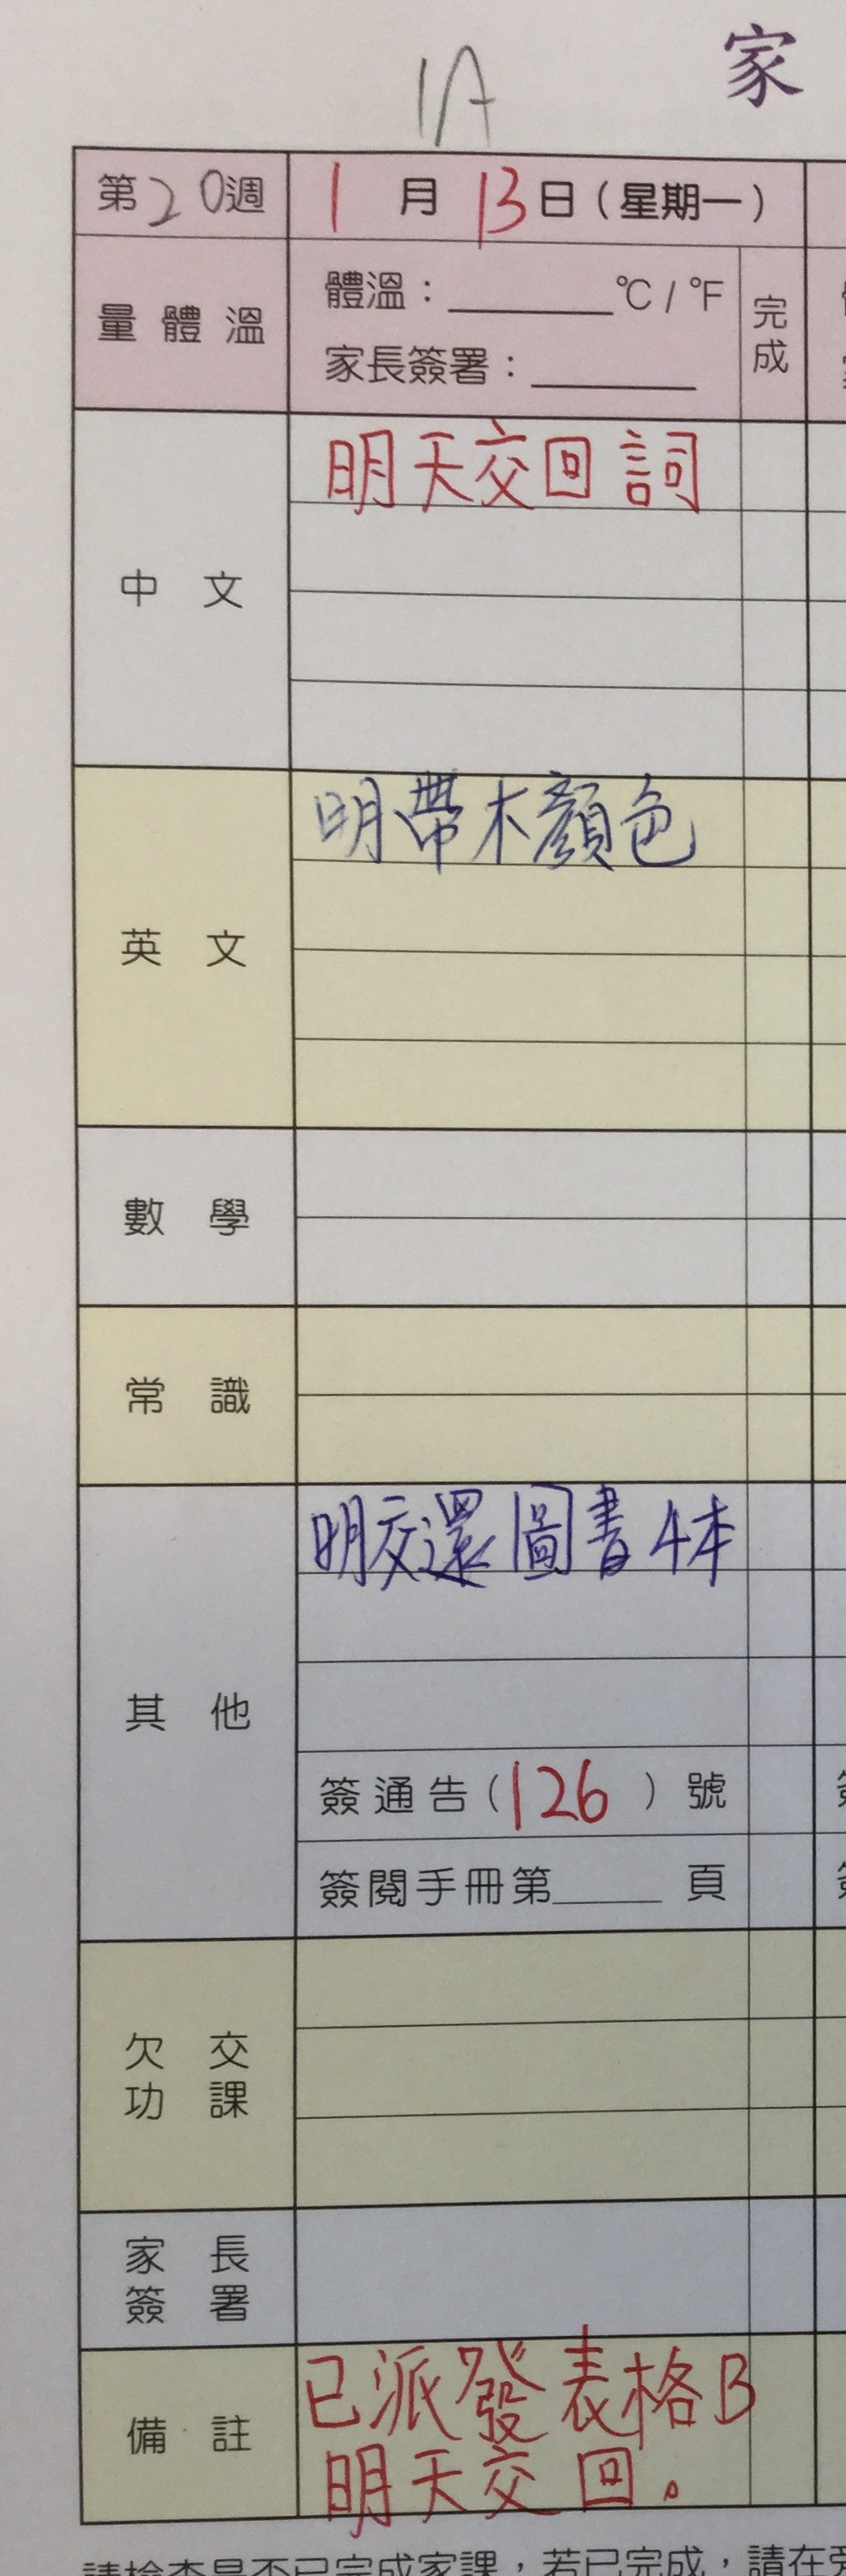 1A
家
第20週
1月13日(星期一)
量體溫
體溫：______℃/℉
完成
家長簽署：______
中文
明天交回詞
英文
明帶木顏色
數學
常識
其他
明交還圖書4本
簽通告(126)號
簽閱手冊第______頁
欠交
功課
家長
簽署
備註
已派發表格B
明天交回。
請檢查是否已完成家課，若已完成，請在